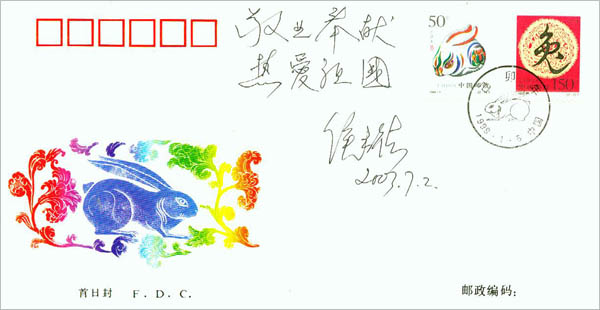 敬业奉献
热愛祖國
2003.7.2.
50分
中国邮政
兔
150
卯
1999.1.5
中国
首日封 F.D.C.
邮政编码: